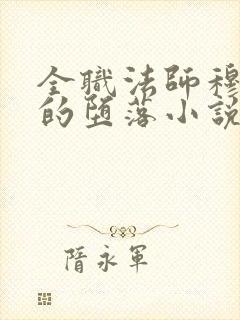 全職法師穆
的墮落小說
隋永軍